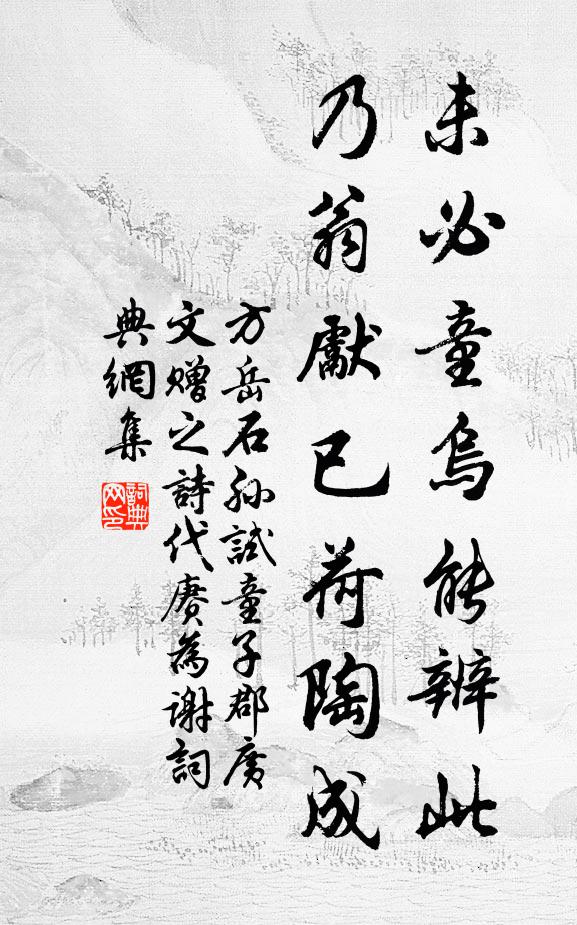 未必童烏能辨此
乃翁獻已荷陶成
方岳石孙試童子郡廣
文赠之詩代賡為谢詞
典網集
詞典
网印